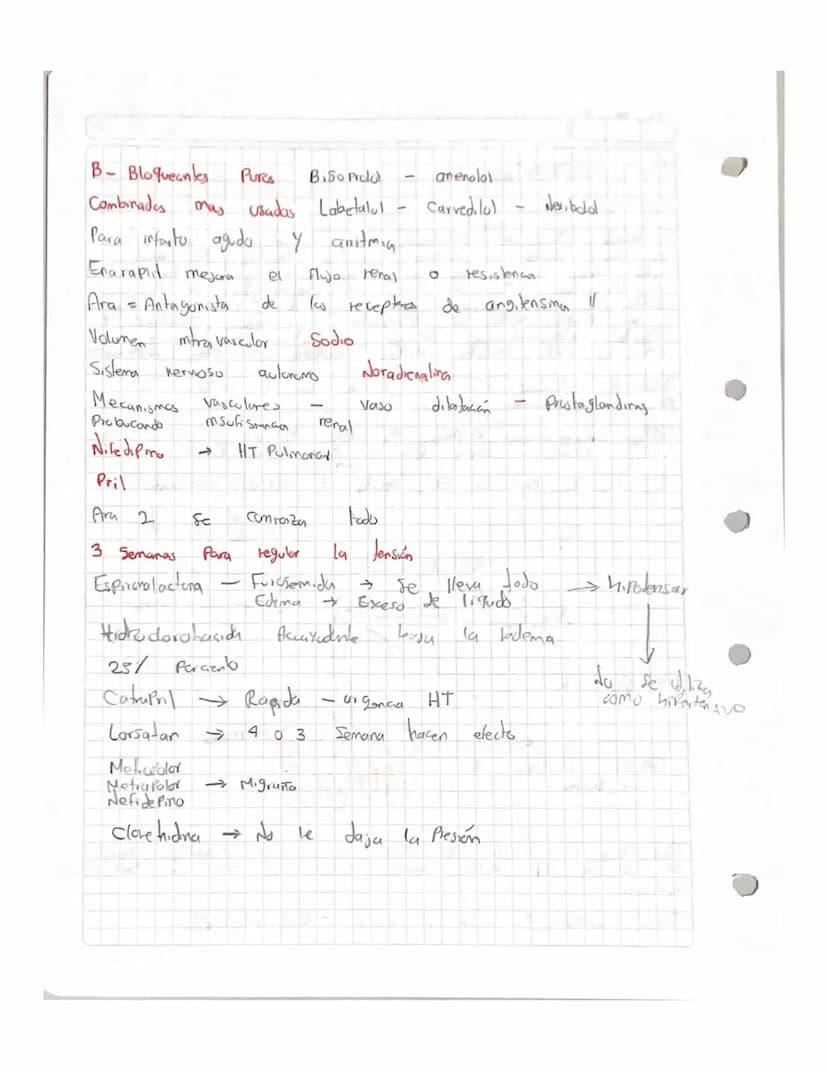 B- Bloqueantes Puros Bisoprolol - anenolol
Combinados mas usados Labetalol - Carvedilol - Nevibolol
Para infarto agudo y arritmia
Enarapril mejora el flujo renal o resistencia
Ara = Antagonista de los receptores de angitensina II
Volumen intravascular Sodio
Sistema nervoso autonomo Noradrenalina
Mecanismos vasculares - vaso dilatación - prostaglandinas
Probucando insuficiencia renal
Nifedipino → HT Pulmonar
Pril
Ara 2 se comienza todo
3 Semanas Para regular la tensión
Espironolactona - Furosemida → se lleva todo → hipotensor
Edema → Exceso de liqudo
la
25% Porciento
No se utiliza
como hipertensivo
→ Rapida - urgencia HT
Lorsatan → 4 o 3 Semana hacen efecto
Metrapolol → Migraña
Nefidepino
→ No le daja la Presión